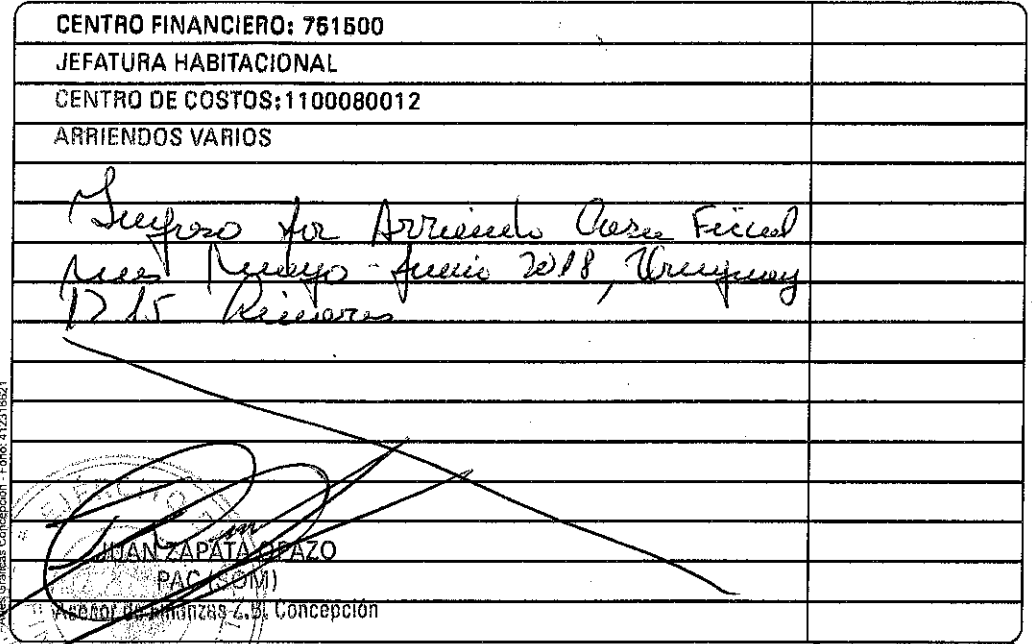 CENTRO FINANCIERO: 761500
JEFATURA HABITACIONAL
CENTRO DE COSTOS:1100080012
ARRIENDOS VARIOS
Ingreso por Arriendo Casa Fiscal
mes Mayo - Junio 2018, Uruguay
1715
JUAN ZAPATA OPAZO
PAC (SOM)
Asesor de Finanzas Z.B. Concepción
Artes Gráficas Concepción - Fono: 412316621
EJERCITO